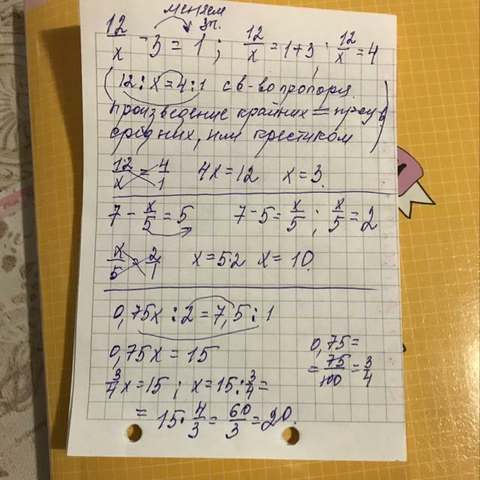 меняем
зн.
12/x - 3 = 1 ; 12/x = 1+3 ; 12/x = 4
(12 : x = 4 : 1 св-во пропорц.
произведение крайних = произв
средних, или крестиком)
12/x = 4/1 4x = 12 x = 3.
7 - x/5 = 5 7-5 = x/5 ; x/5 = 2
x/5 = 2/1 x = 5·2 x = 10.
0,75x : 2 = 7,5 : 1
0,75x = 15 0,75 =
= 75/100 = 3/4
3/4x = 15 ; x = 15 : 3/4 =
= 15 · 4/3 = 60/3 = 20.